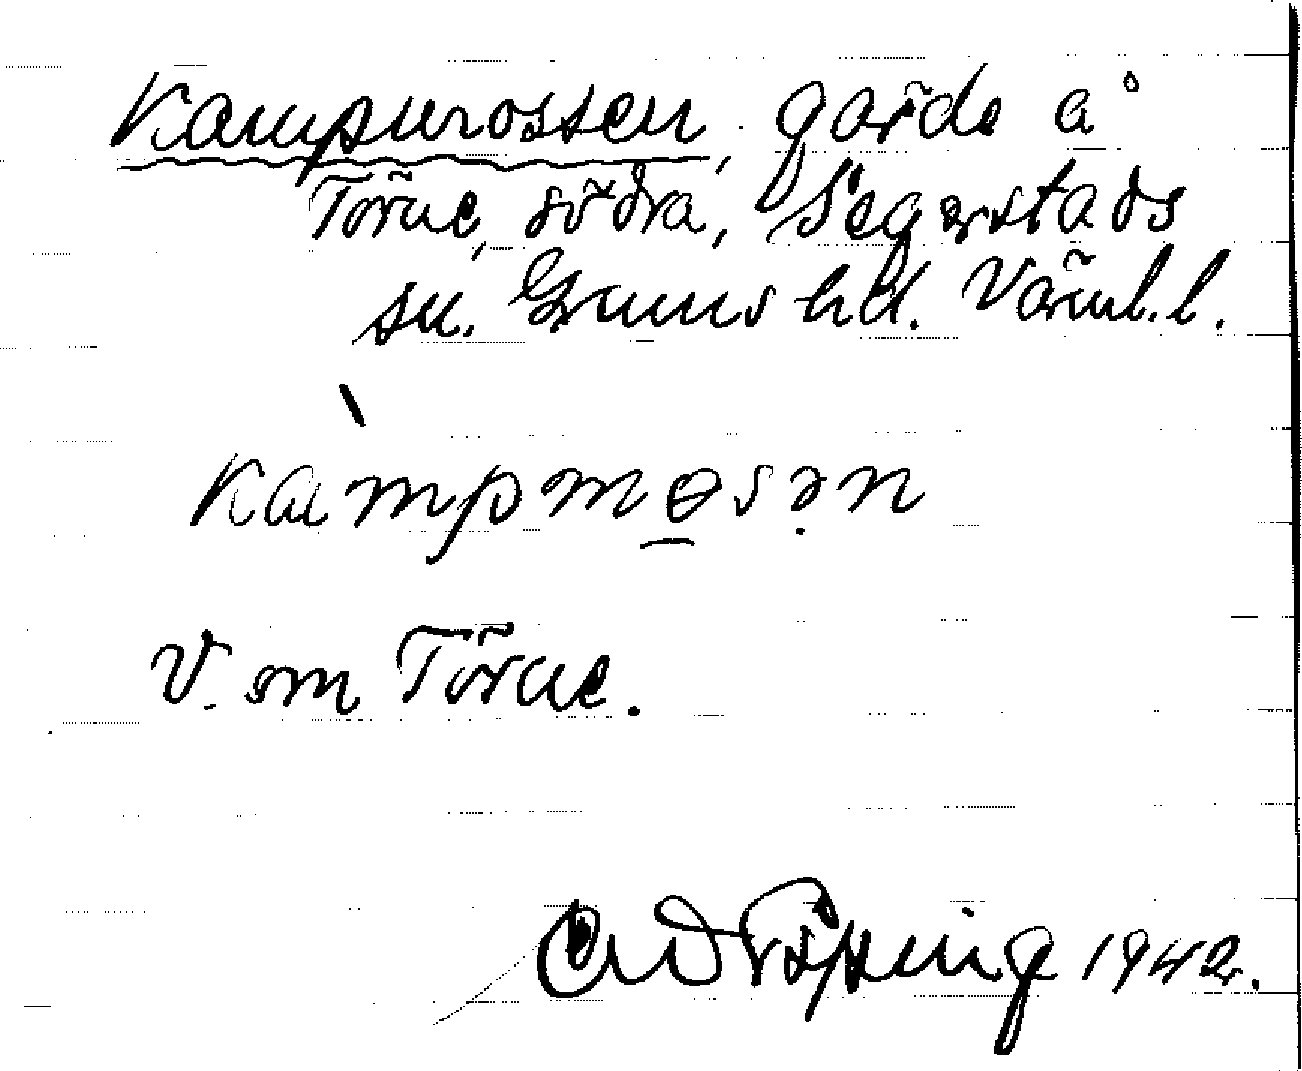 Kampmossen, gärde å
Törne, södra, Segerstads
sn. Grums hd. Värml. l.
kampmɵsən
V. om Törne.
1942.